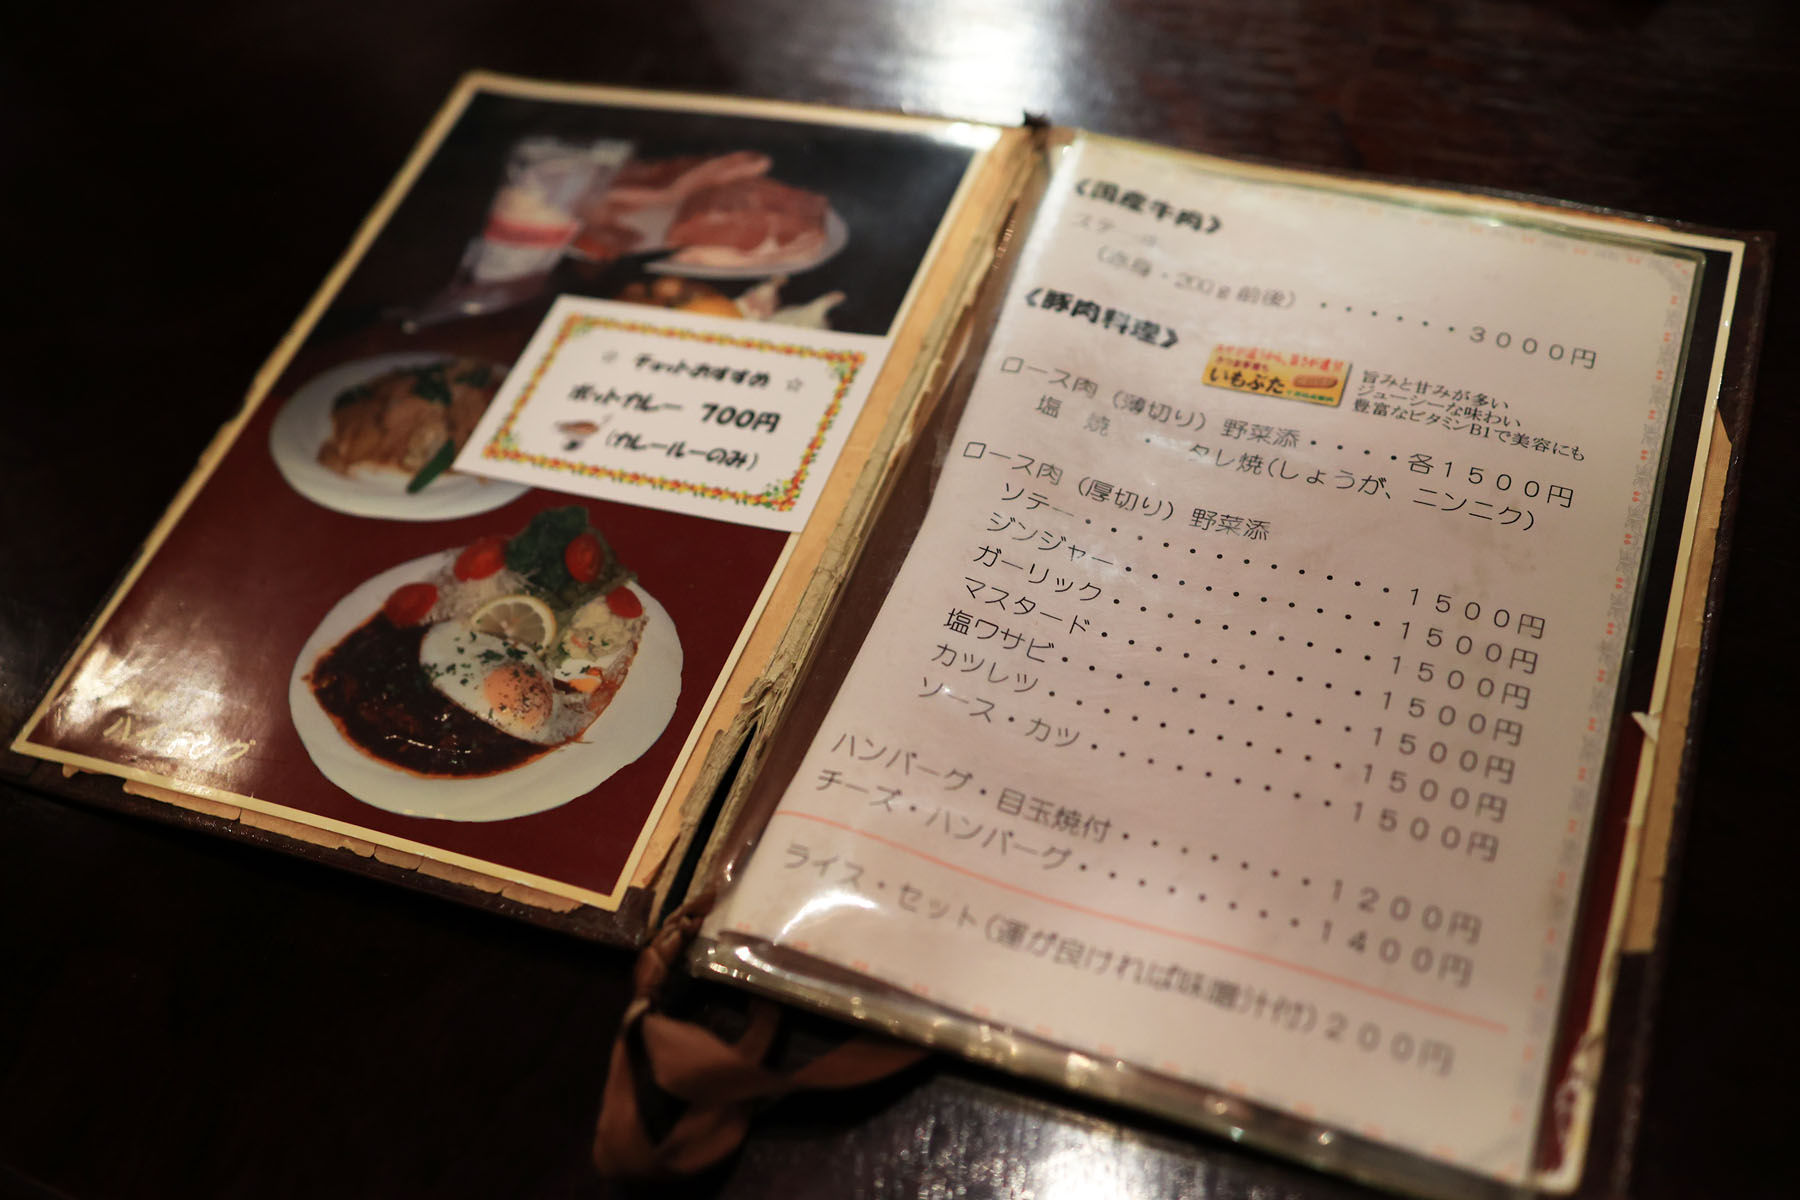 ☆ チョットおすすめ ☆
ポットカレー 700円
(カレールーのみ)
ハイデング
《国産牛肉》
ステーキ
(赤身・200g前後)・・・・・・・3000円
《豚肉料理》
いもぶた
旨みと甘みが多い
ジューシーな味わい
豊富なビタミンB1で美容にも
ロース肉(薄切り)野菜添・・・・各1500円
塩 焼 ・ タレ焼(しょうが、ニンニク)
ロース肉(厚切り)野菜添
ソテー・・・・・・・・・・・・・1500円
ジンジャー・・・・・・・・・・・1500円
ガーリック・・・・・・・・・・・1500円
マスタード・・・・・・・・・・・1500円
塩ワサビ・・・・・・・・・・・・1500円
カツレツ・・・・・・・・・・・・1500円
ソース・カツ・・・・・・・・・・1500円
ハンバーグ・目玉焼付・・・・・・・1200円
チーズ・ハンバーグ・・・・・・・・1400円
ライス・セット(運が良ければ味噌汁付)200円